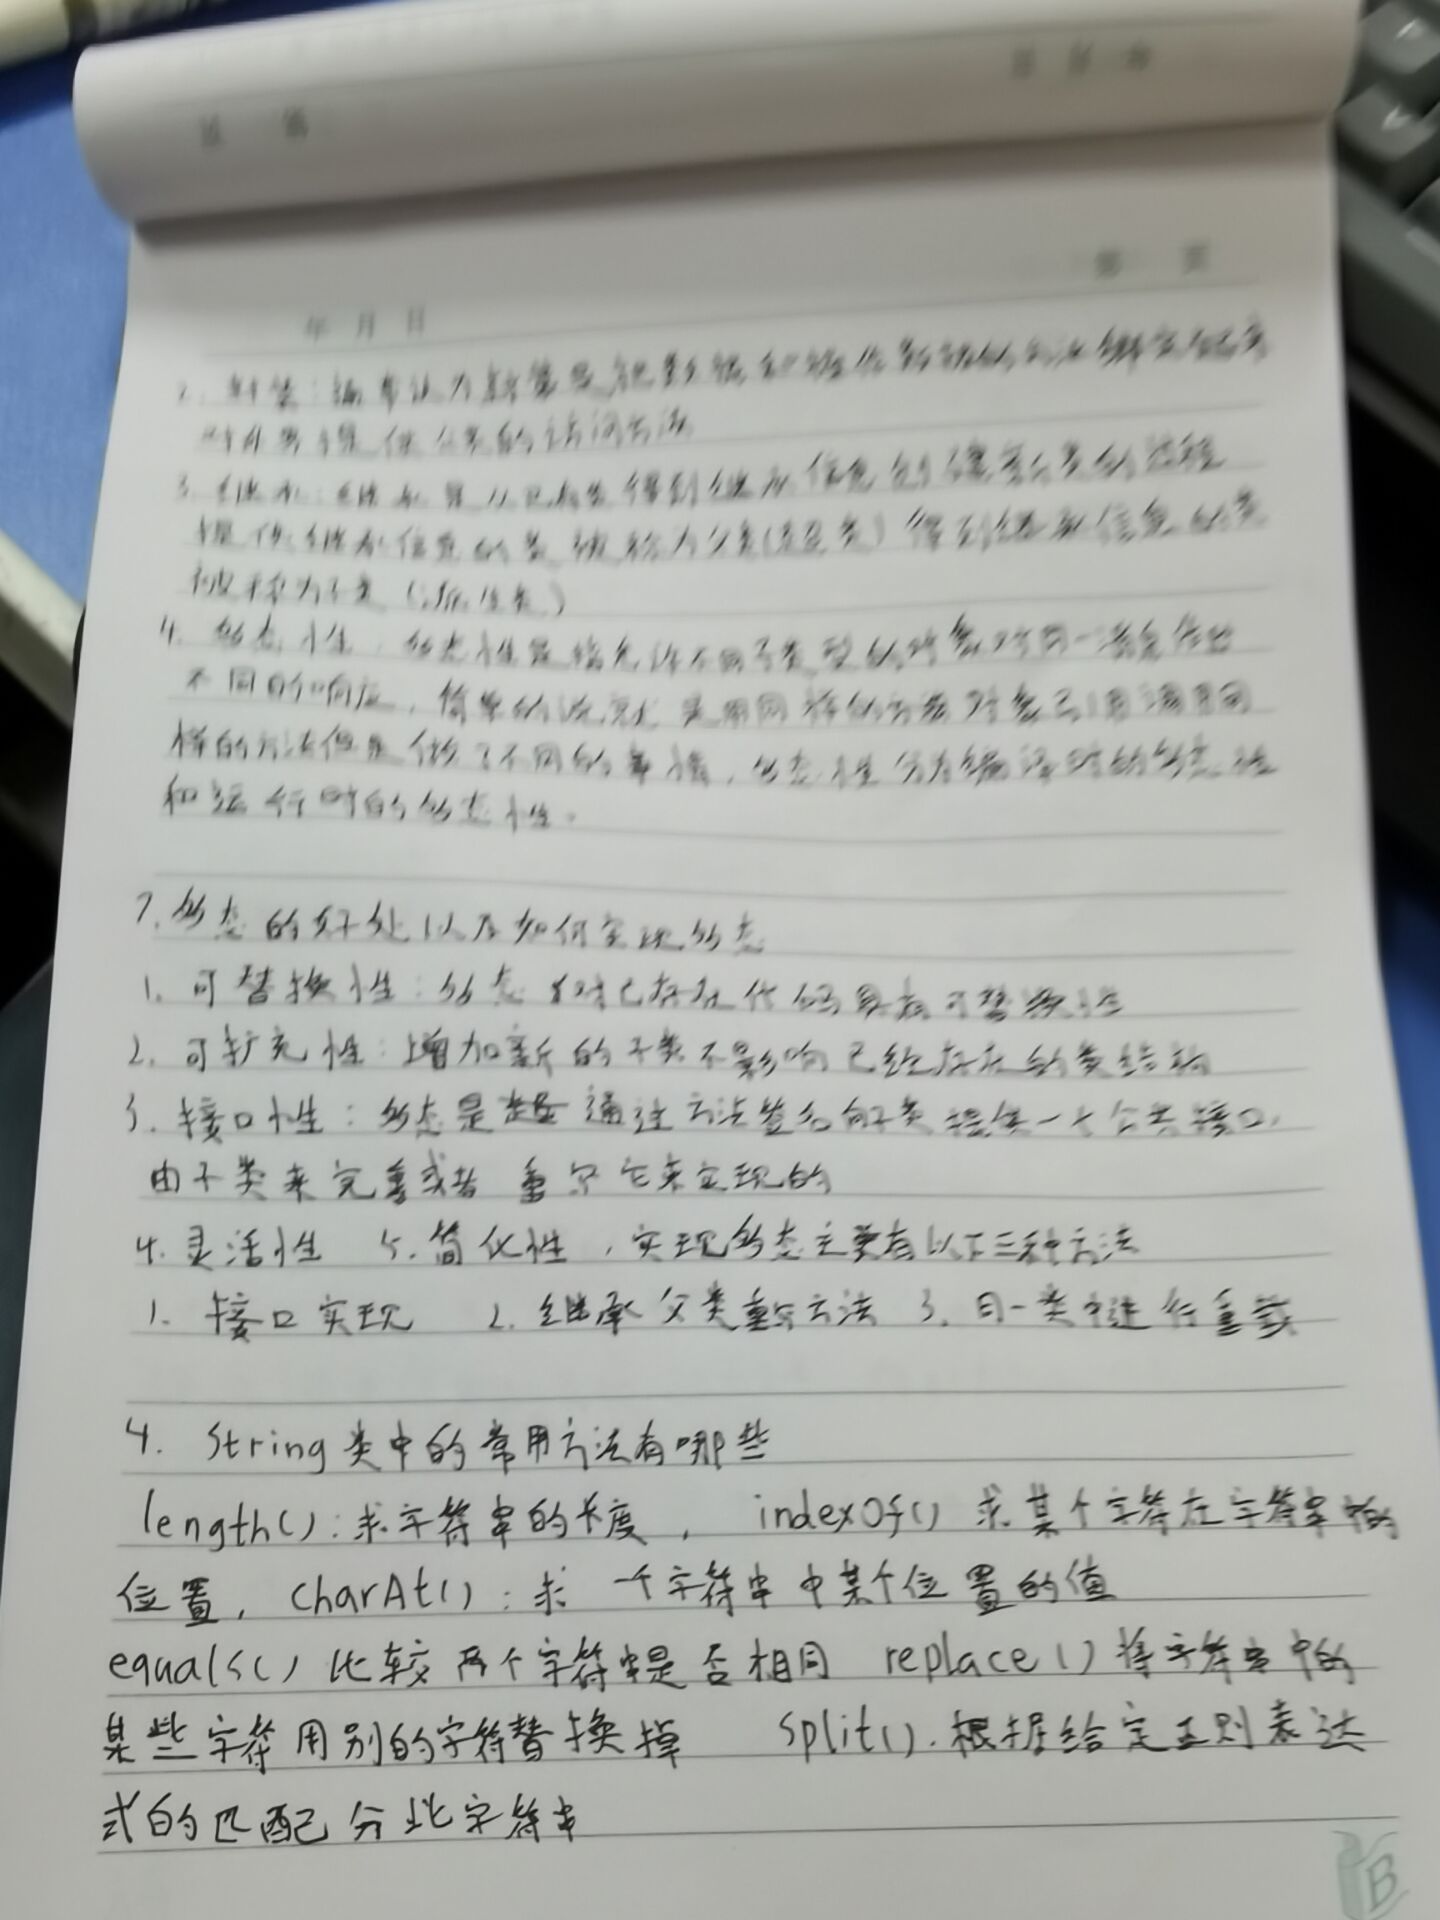 年 月 日
2. 封装：通常认为封装是把数据和操作数据的方法绑定起来
对外界提供 的访问方法
3. 继承：继承是从已有类得到继承信息创建新类的过程
提供继承信息的类被称为父类(超类）得到继承信息的类
被称为子类（派生类）
4. 多态性：多态性是指允许不同子类型的对象对同一消息作出
不同的响应，简单的说就是用同样的 对象引用调用同
样的方法但是做了不同的事情，多态性分为编译时的多态性
和运行时的多态性。
7. 多态的好处以及如何实现多态
1. 可替换性：多态对已存在代码具有可替换性
2. 可扩充性：增加新的子类不影响已经存在的类结构
3. 接口性：多态是 通过方法签名向子类提供一个公共接口，
由子类来完善或者重写它来实现的
4. 灵活性 5. 简化性，实现多态主要有以下三种方法
1. 接口实现 2. 继承父类重写方法 3. 同一类中进行重载
4. String类中的常用方法有哪些
length()：求字符串的长度， indexOf() 求某个字符在字符串中的
位置，charAt()：求一个字符串中某个位置的值
equals() 比较两个字符串是否相同 replace() 将字符串中的
某些字符用别的字符替换掉 split()．根据给定正则表达
式的匹配分此字符串
B